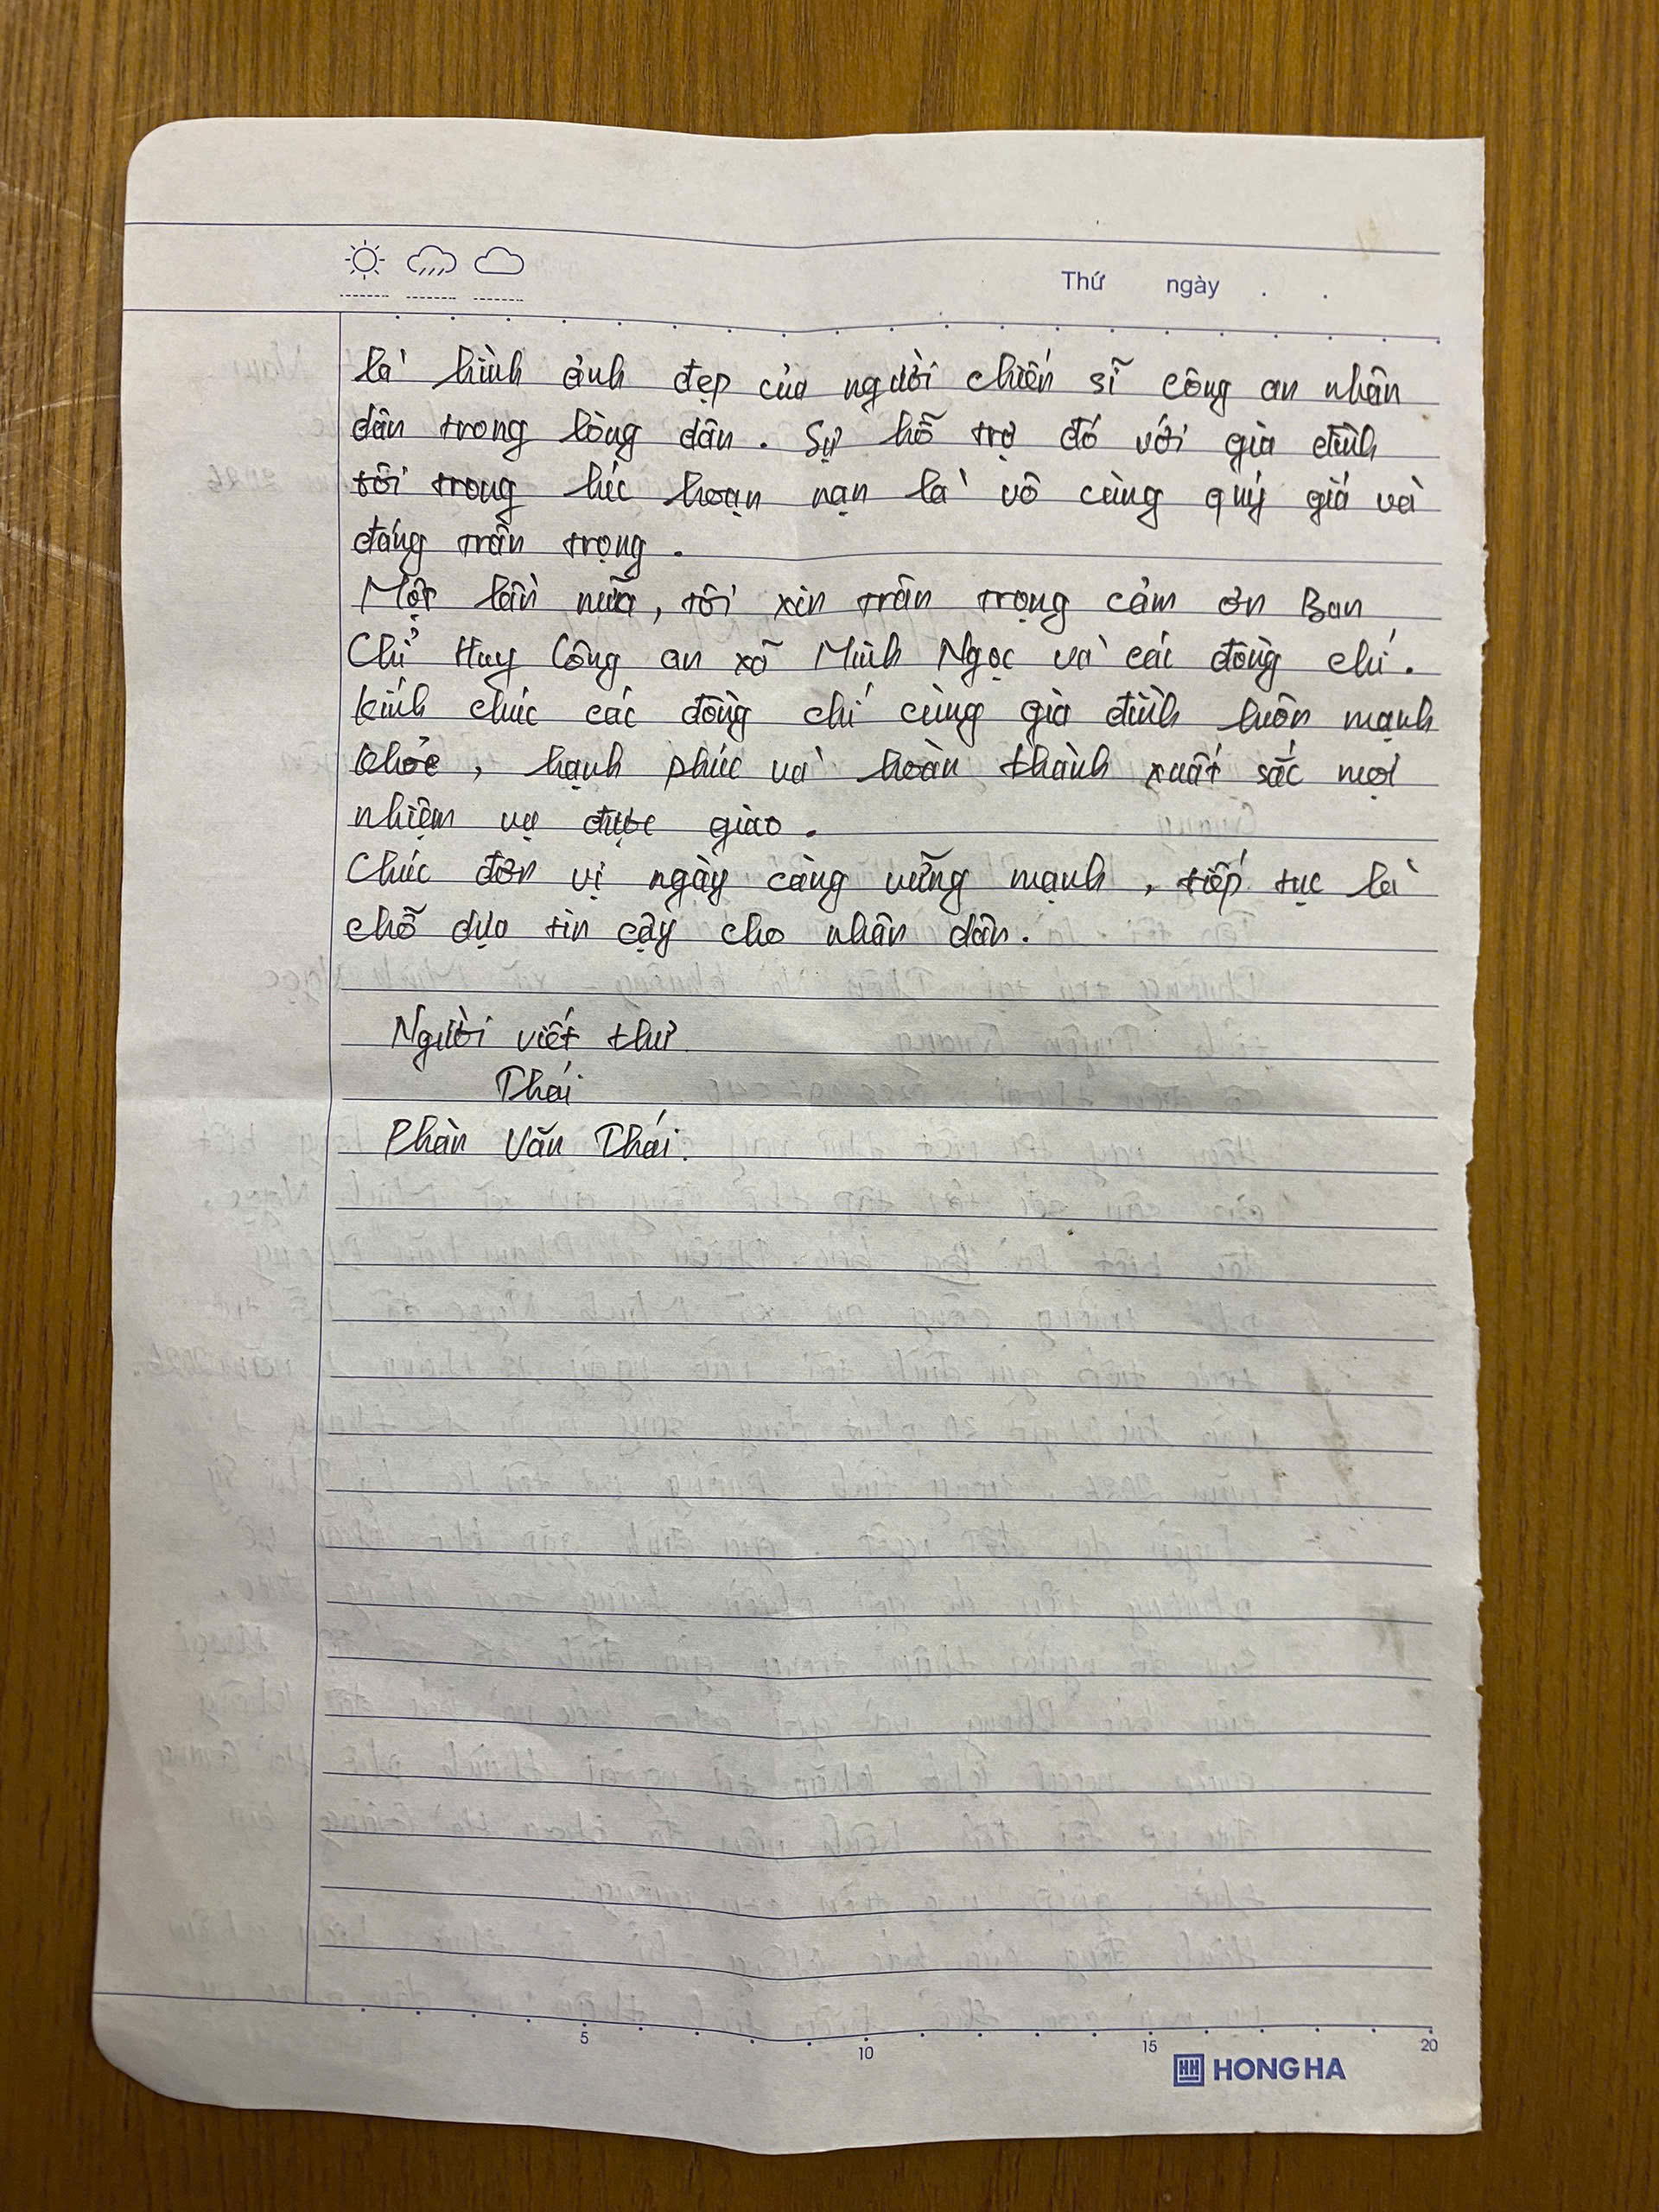 Thứ ngày . .
là hình ảnh đẹp của người chiến sĩ công an nhân
dân trong lòng dân. Sự hỗ trợ đó với gia đình
tôi trong lúc hoạn nạn là vô cùng quý giá và
đáng trân trọng.
Một lần nữa, tôi xin trân trọng cảm ơn Ban
Chỉ Huy Công an xã Minh Ngọc và các đồng chí.
kính chúc các đồng chí cùng gia đình luôn mạnh
khỏe, hạnh phúc và hoàn thành xuất sắc mọi
nhiệm vụ được giao.
Chúc đơn vị ngày càng vững mạnh, tiếp tục là
chỗ dựa tin cậy cho nhân dân.
Người viết thư
Thái
Phàn Văn Thái.
5 10 15 20
HH HONG HA